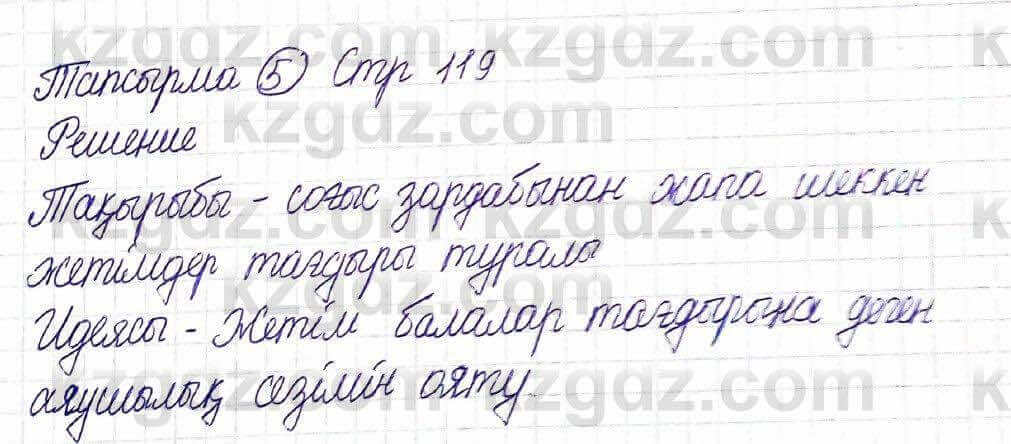 Тапсырма 5 Стр 119
Решение
Тақырыбы - соғыс зардабынан жапа шеккен
жетімдер тағдыры туралы
Идеясы - Жетім балалар тағдырына деген
аяушылық сезімін ояту.
kzgdz.com kzgdz.com
kzgdz.com kzgdz.com
kzgdz.com kzgdz.com
kzgdz.com kzgdz.com
kzgdz.com kzgdz.com